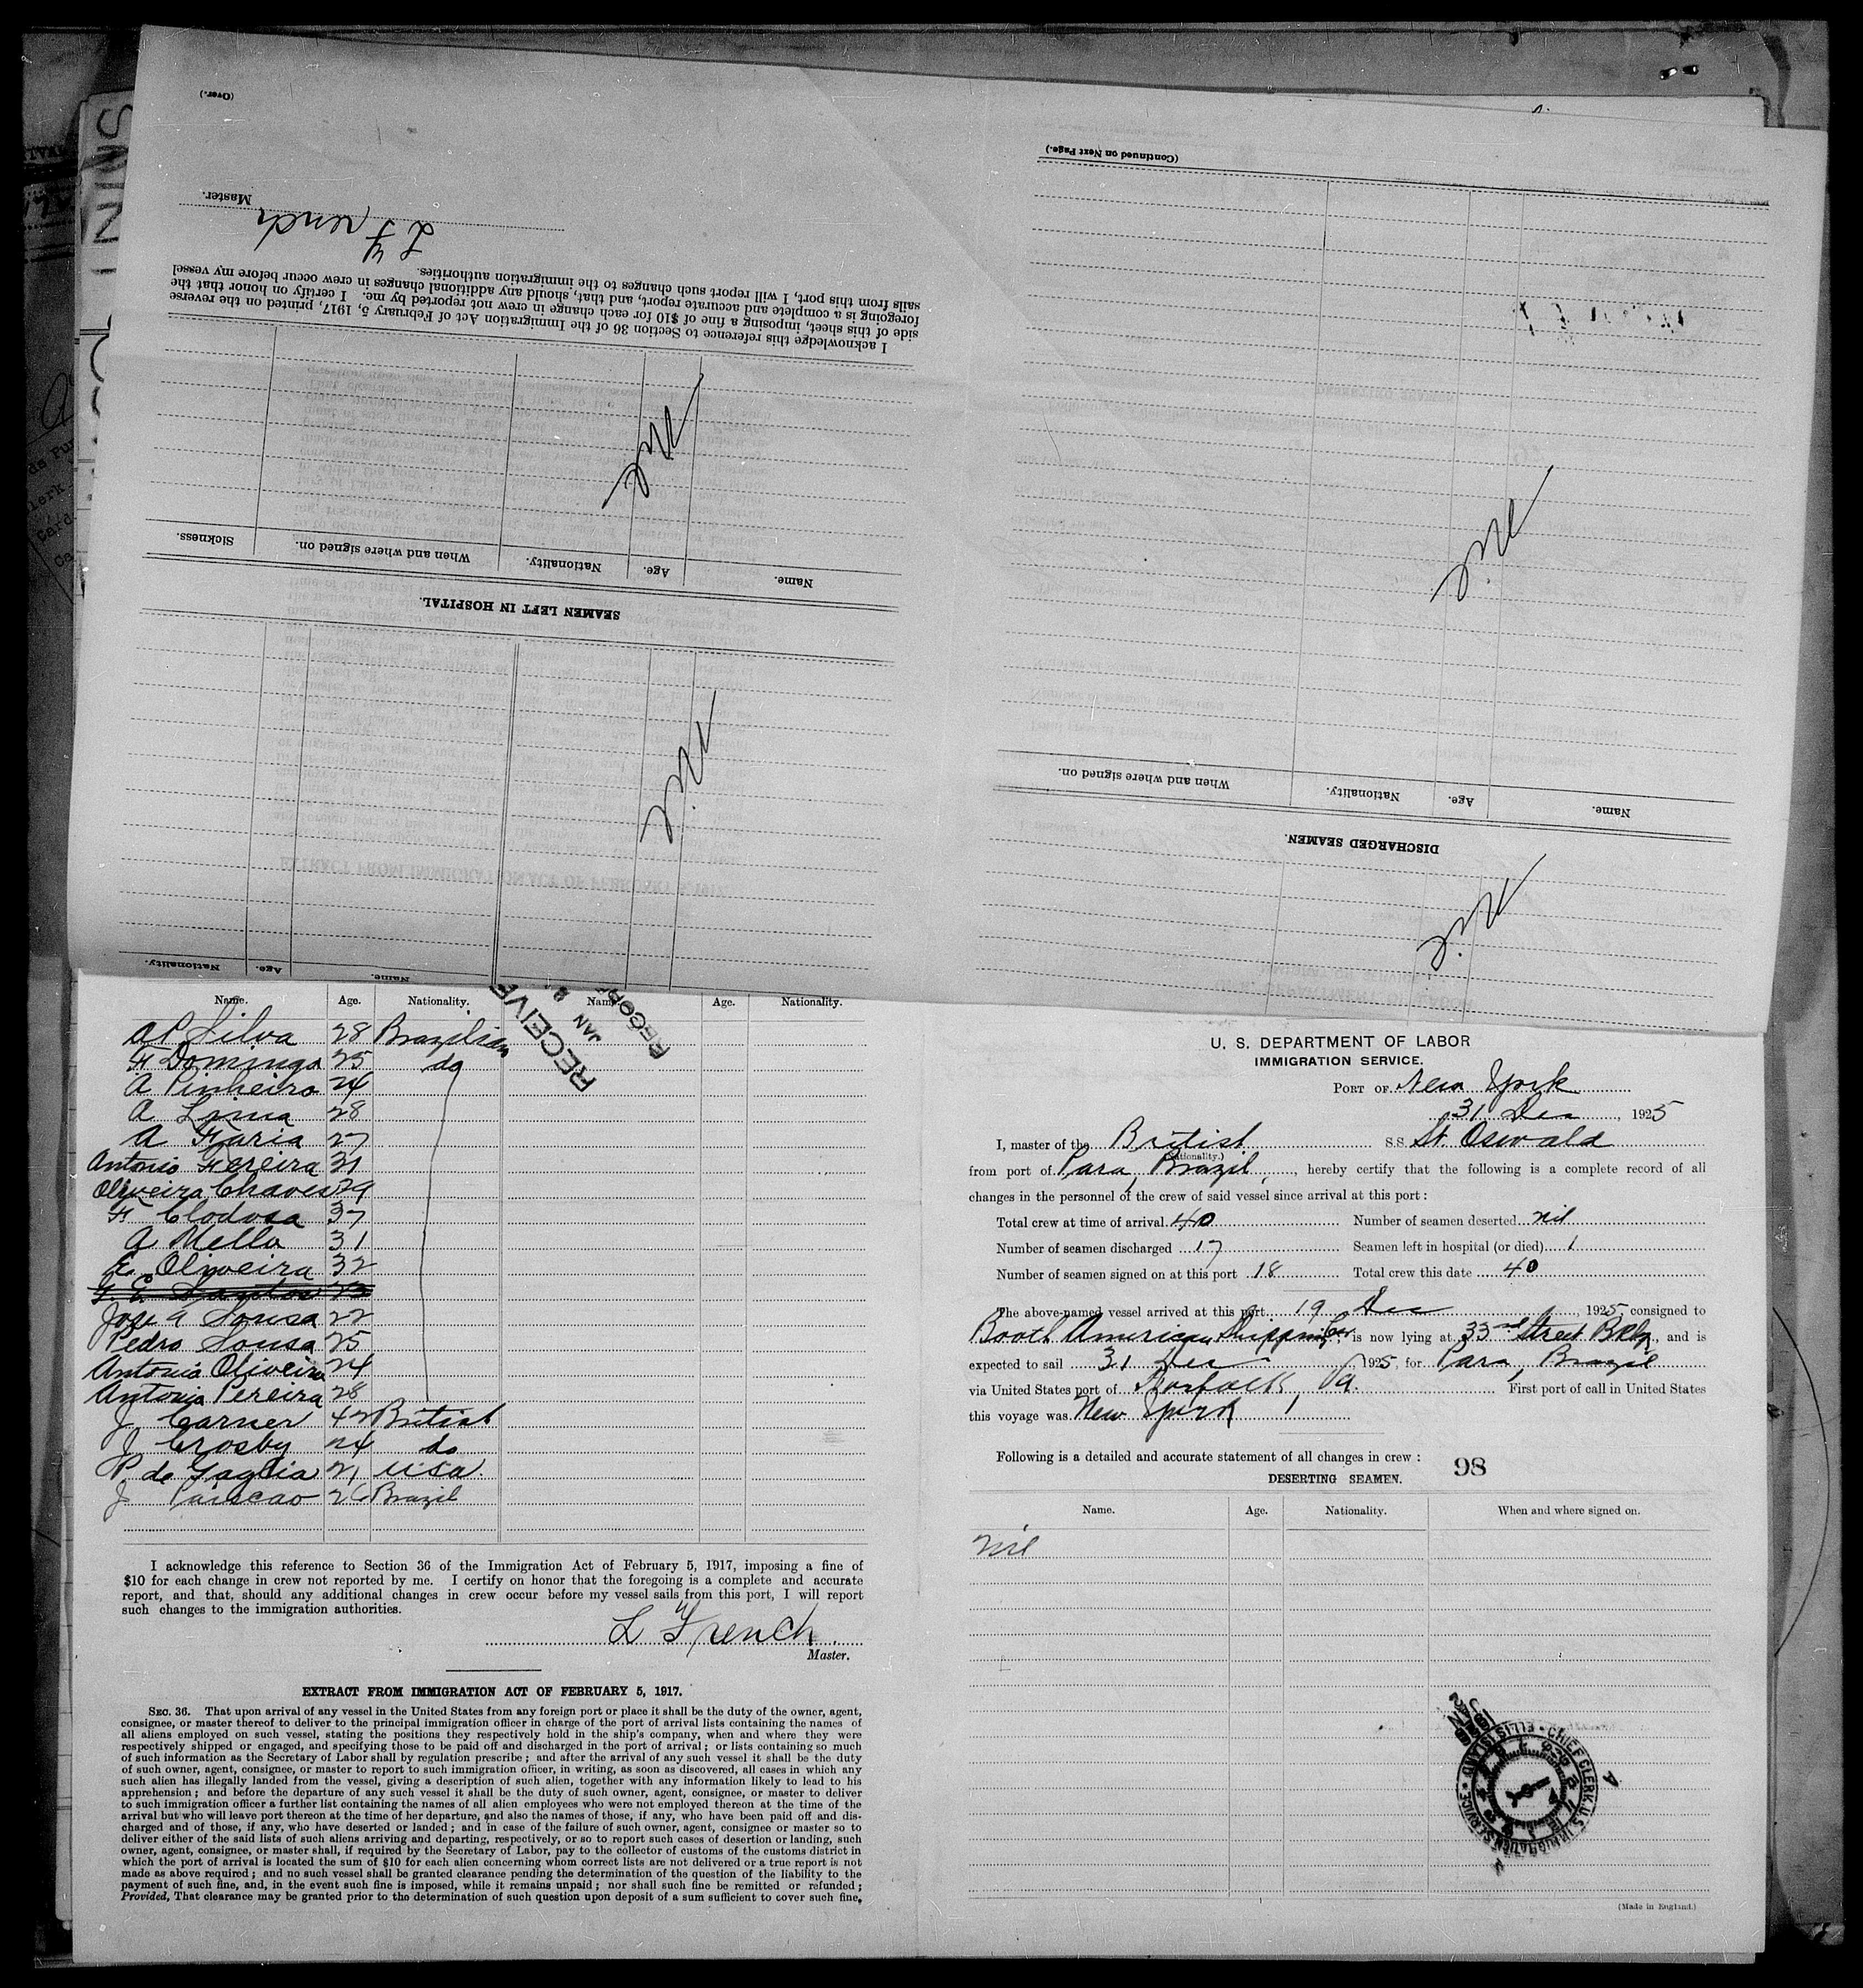 (Over.)
Master.
L French
I acknowledge this reference to Section 36 of the Immigration Act of February 5, 1917, printed on the reverse
side of this sheet, imposing a fine of $10 for each change in crew not reported by me. I certify on honor that the
foregoing is a complete and accurate report, and that, should any additional changes in crew occur before my vessel
sails from this port, I will report such changes to the immigration authorities.
Nil
Name. Age. Nationality. When and where signed on. Sickness.
SEAMEN LEFT IN HOSPITAL.
Nil
Name. Age. Nationality.
(Continued on Next Page.)
Nil
Name. Age. Nationality. When and where signed on.
DISCHARGED SEAMEN.
Nil
Name. Age. Nationality. Name. Age. Nationality.
RECEIVE
JAN
RECOR
A P Silva 28 Brazilian
F Domingo 25 do
A Pinheiro 24
A Lima 28
A Faria 27
Antonio Fereira 31
Oliveira Chaves 29
F Clodosa 37
A Mello 31
E. Oliveira 32
Santos 23
Jose A Sousa 22
Pedro Sousa 25
Antonio Oliveira 24
Antonio Pereira 28
J Carner 42 British
J Crosby 24 do
P. de 21 USA.
J 26 Brazil
I acknowledge this reference to Section 36 of the Immigration Act of February 5, 1917, imposing a fine of
$10 for each change in crew not reported by me. I certify on honor that the foregoing is a complete and accurate
report, and that, should any additional changes in crew occur before my vessel sails from this port, I will report
such changes to the immigration authorities.
L French
Master.
EXTRACT FROM IMMIGRATION ACT OF FEBRUARY 5, 1917.
SEC. 36. That upon arrival of any vessel in the United States from any foreign port or place it shall be the duty of the owner, agent,
consignee, or master thereof to deliver to the principal immigration officer in charge of the port of arrival lists containing the names of
all aliens employed on such vessel, stating the positions they respectively hold in the ship's company, when and where they were
respectively shipped or engaged, and specifying those to be paid off and discharged in the port of arrival; or lists containing so much
of such information as the Secretary of Labor shall by regulation prescribe; and after the arrival of any such vessel it shall be the duty
of such owner, agent, consignee, or master to report to such immigration officer, in writing, as soon as discovered, all cases in which any
such alien has illegally landed from the vessel, giving a description of such alien, together with any information likely to lead to his
apprehension; and before the departure of any such vessel it shall be the duty of such owner, agent, consignee, or master to deliver
to such immigration officer a further list containing the names of all alien employees who were not employed thereon at the time of the
arrival but who will leave port thereon at the time of her departure, and also the names of those, if any, who have been paid off and dis-
charged and of those, if any, who have deserted or landed; and in case of the failure of such owner, agent, consignee or master so to
deliver either of the said lists of such aliens arriving and departing, respectively, or so to report such cases of desertion or landing, such
owner, agent, consignee, or master shall, if required by the Secretary of Labor, pay to the collector of customs of the customs district in
which the port of arrival is located the sum of $10 for each alien concerning whom correct lists are not delivered or a true report is not
made as above required; and no such vessel shall be granted clearance pending the determination of the question of the liability to the
payment of such fine, and, in the event such fine is imposed, while it remains unpaid; nor shall such fine be remitted or refunded;
Provided, That clearance may be granted prior to the determination of such question upon deposit of a sum sufficient to cover such fine,
U. S. DEPARTMENT OF LABOR
IMMIGRATION SERVICE.
PORT OF New York
31 Dec, 1925
I, master of the British S.S. St. Oswald
(Nationality.)
from port of Para, Brazil, hereby certify that the following is a complete record of all
changes in the personnel of the crew of said vessel since arrival at this port:
Total crew at time of arrival 40 Number of seamen deserted nil
Number of seamen discharged 17 Seamen left in hospital (or died) 1
Number of seamen signed on at this port 18 Total crew this date 40
The above-named vessel arrived at this port 19 Dec, 1925, consigned to
Booth American Shipping Co, is now lying at 33rd Street Bkly, and is
expected to sail 31 Dec 1925, for Para, Brazil
via United States port of Norfolk, Va. First port of call in United States
this voyage was New York
Following is a detailed and accurate statement of all changes in crew:
98
DESERTING SEAMEN.
Name. Age. Nationality. When and where signed on.
Nil
JAN 2
1926
CHIEF CLERK, U.S. IMMIGRATION SERVICE · ELLIS ISLAND ·
(Made in England.)